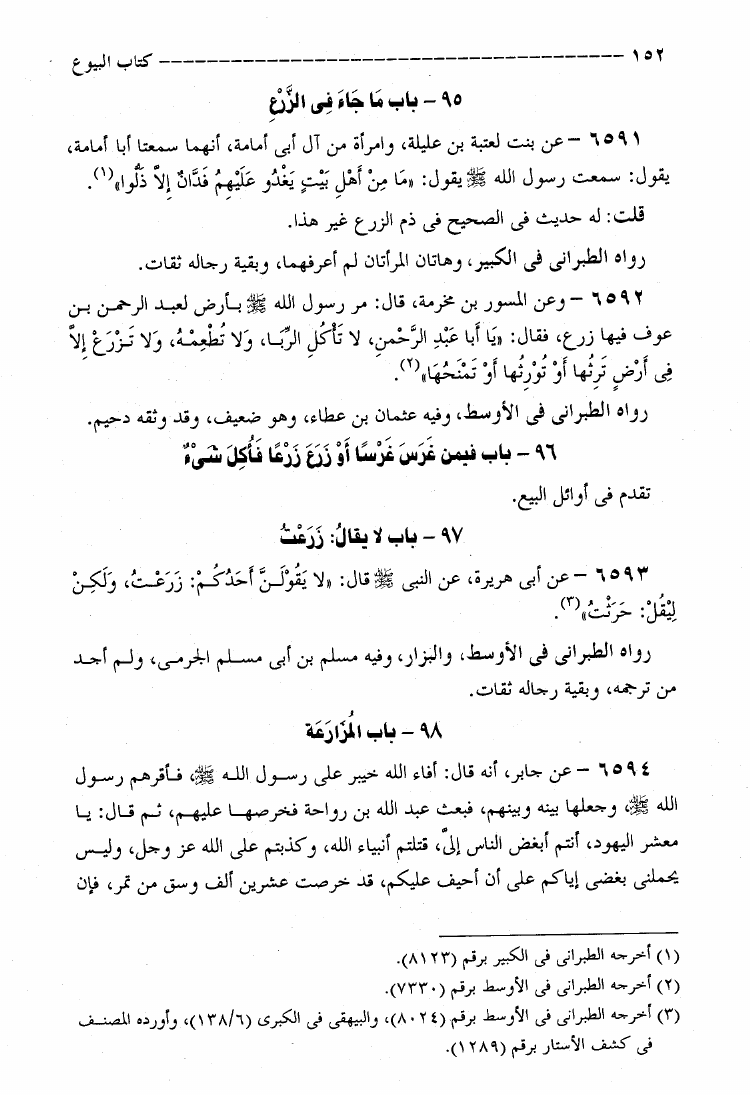 ١٥٢ ــــــــــــــــــــــــــــــــــــــــــــــــــــــــ كتاب البيوع
٩٥ – باب مَا جَاءَ فِى الزَّرْعِ
٦٥٩١ – عن بنت لعتبة بن عليلة، وامرأة من آل أبى أمامة، أنهما سمعتا أبا أمامة،
يقول: سمعت رسول الله ﷺ يقول: «مَا مِنْ أَهْلِ بَيْتٍ يَغْدُو عَلَيْهِمُ فَدَّانٌ إِلاَّ ذَلُّوا»(١).
قلت: له حديث فى الصحيح فى ذم الزرع غير هذا.
رواه الطبرانى فى الكبير، وهاتان المرأتان لم أعرفهما، وبقية رجاله ثقات.
٦٥٩٢ – وعن المسور بن مخرمة، قال: مر رسول الله ﷺ بأرض لعبد الرحمن بن
عوف فيها زرع، فقال: «يَا أَبا عَبْدِ الرَّحْمنِ، لا تَأْكُلِ الرِّبَا، وَلا تُطْعِمْهُ، وَلا تَزْرَعْ إِلاَّ
فِى أَرْضٍ تَرِثُها أَوْ تُوْرِثُها أَوْ تَمْنَحُهَا»(٢).
رواه الطبرانى فى الأوسط، وفيه عثمان بن عطاء، وهو ضعيف، وقد وثقه دحيم.
٩٦ – باب فيمن غَرَسَ غَرْسًا أَوْ زَرَعَ زَرْعًا فَأُكِلَ شَىْءٌ
تقدم فى أوائل البيع.
٩٧ – باب لا يقالُ: زَرَعْتُ
٦٥٩٣ – عن أبى هريرة، عن النبى ﷺ قال: «لا يَقُوْلَنَّ أَحَدُكُمْ: زَرَعْتُ، وَلَكِنْ
لِيْقُلْ: حَرَثْتُ»(٣).
رواه الطبرانى فى الأوسط، والبزار، وفيه مسلم بن أبى مسلم الجرمى، ولم أجد
من ترجمه، وبقية رجاله ثقات.
٩٨ – باب الُمزَارَعَة
٦٥٩٤ – عن جابر، أنه قال: أفاء الله خيبر على رسول الله ﷺ، فأقرهم رسول
الله ﷺ، وجعلها بينه وبينهم، فبعث عبد الله بن رواحة فخرصها عليهم، ثم قال: يا
معشر اليهود، أنتم أبغض الناس إلىَّ، قتلتم أنبياء الله، وكذبتم على الله عز وجل، وليس
يحملنى بغضى إياكم على أن أحيف عليكم، قد خرصت عشرين ألف وسق من تمر، فإن
(١) أخرجه الطبرانى فى الكبير برقم (٨١٢٣).
(٢) أخرجه الطبرانى فى الأوسط برقم (٧٣٣٠).
(٣) أخرجه الطبرانى فى الأوسط برقم (٨٠٢٤)، والبيهقى فى الكبرى (١٣٨/٦)، وأورده المصنف
فى كشف الأستار برقم (١٢٨٩).